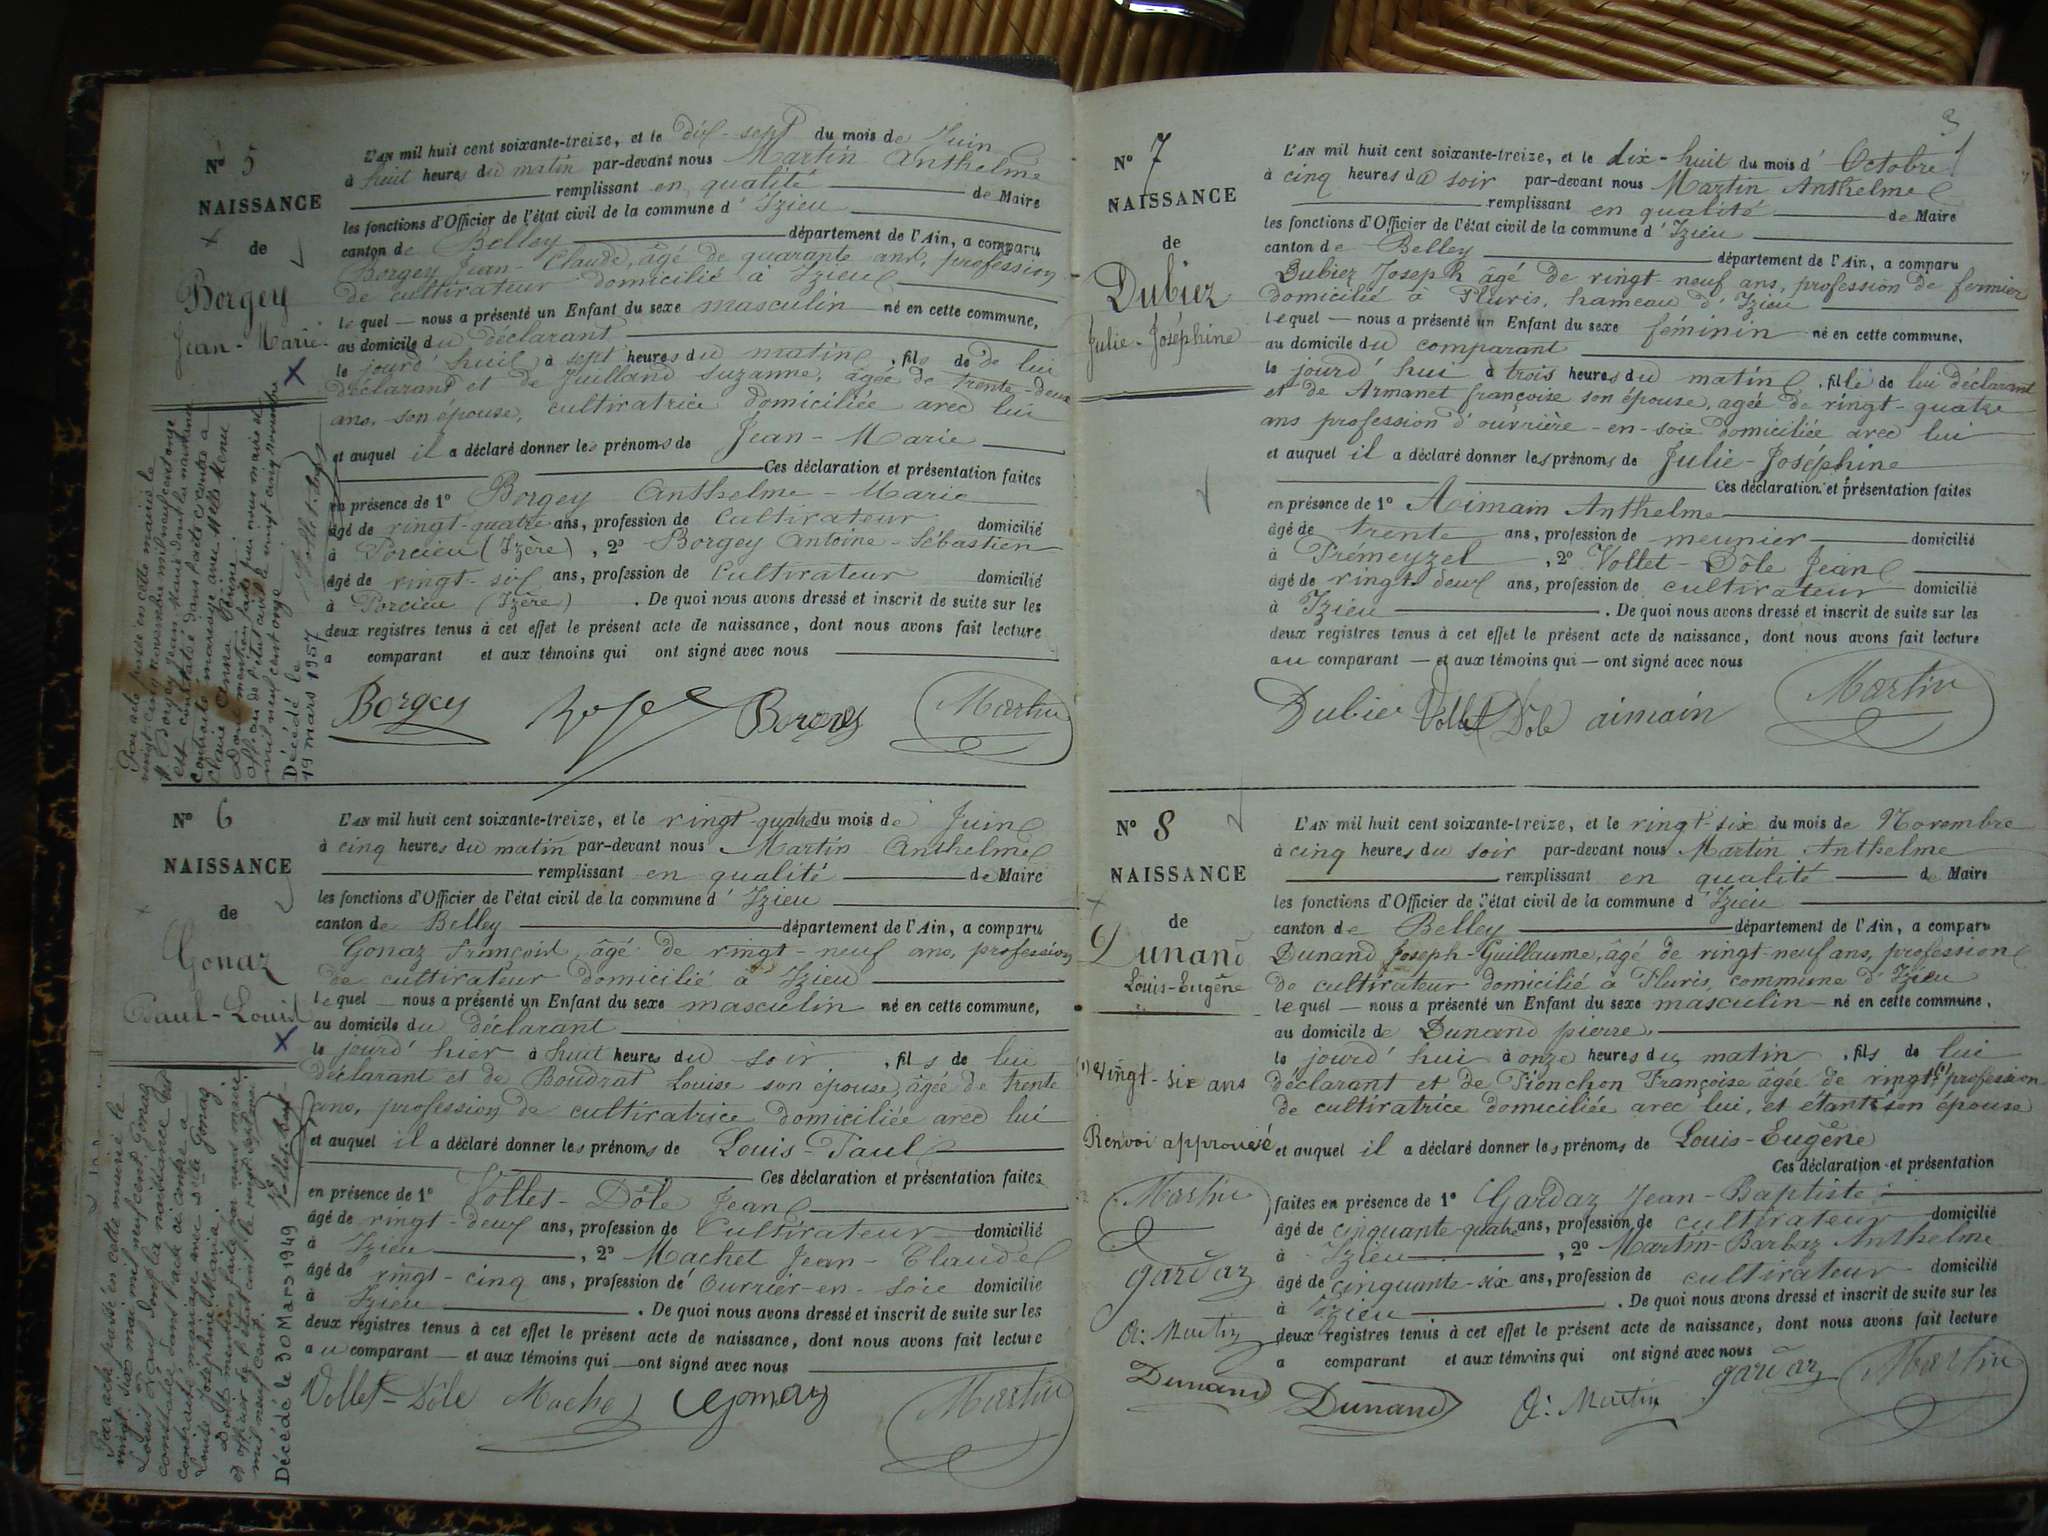 N° 5
NAISSANCE
de
Borgey
Jean-Marie
L'AN mil huit cent soixante-treize, et le dix-sept du mois de Juin
à huit heures du matin par-devant nous Martin Anthelme
remplissant en qualité de Maire
les fonctions d'Officier de l'état civil de la commune d'Izieu
canton de Belley département de l'Ain, a comparu
Borgey Jean-Claude, âgé de quarante ans, profession
de cultivateur domicilié à Izieu
lequel nous a présenté un Enfant du sexe masculin né en cette commune,
au domicile du déclarant
le jourd'huit à sept heures du matin, fils de de lui
déclarant et de Juilland Suzanne, âgée de trente-deux
ans, son épouse, cultivatrice domiciliée avec lui
et auquel il a déclaré donner les prénoms de Jean-Marie
Ces déclaration et présentation faites
en présence de 1° Borgey Anthelme-Marie
âgé de vingt-quatre ans, profession de Cultivateur domicilié
à Porcieu (Izère), 2° Borgey Antoine-Sébastien
âgé de vingt-six ans, profession de Cultivateur domicilié
à Porcieu (Izère). De quoi nous avons dressé et inscrit de suite sur les
deux registres tenus à cet effet le présent acte de naissance, dont nous avons fait lecture
a comparant et aux témoins qui ont signé avec nous
Borgey Borgey Martin
Par acte passé en cette mairie le
vingt cinq novembre mil neuf cent onze
Borgey Jean Marie dont la naissance
est constatée dans l'acte ci contre a
contracté mariage avec Melle Menu
Claire Anna
Dont mention faite par nous maire et
officier de l'état civil le vingt cinq novembre
mil neuf cent onze
Décédé le
19 mars 1957
N° 6
NAISSANCE
de
Gonaz
Paul-Louis
L'AN mil huit cent soixante-treize, et le vingt-quatre du mois de Juin
à cinq heures du matin par-devant nous Martin Anthelme
remplissant en qualité de Maire
les fonctions d'Officier de l'état civil de la commune d'Izieu
canton de Belley département de l'Ain, a comparu
Gonaz François, âgé de vingt-neuf ans, profession
de cultivateur domicilié à Izieu
lequel nous a présenté un Enfant du sexe masculin né en cette commune,
au domicile du déclarant
le jourd'hier à huit heures du soir, fils de lui
déclarant et de Boudrat Louise son épouse, âgée de trente
ans, profession de cultivatrice domiciliée avec lui
et auquel il a déclaré donner les prénoms de Louis-Paul
Ces déclaration et présentation faites
en présence de 1° Vollet-Dôle Jean
âgé de vingt-deux ans, profession de Cultivateur domicilié
à Izieu, 2° Machet Jean-Claude
âgé de vingt-cinq ans, profession de Ouvrier-en-soie domicilié
à Izieu. De quoi nous avons dressé et inscrit de suite sur les
deux registres tenus à cet effet le présent acte de naissance, dont nous avons fait lecture
au comparant et aux témoins qui ont signé avec nous
Vollet-Dôle Machet Martin
Par acte passé en cette mairie le
vingt six mai mil neuf cent Gonaz
Louis Paul dont la naissance est
constatée dans l'acte ci contre a
contracté mariage avec Gonaz
Louise Joséphine Maria.
Dont mention faite par nous maire
et officier de l'état civil le vingt sept mai
mil neuf cent.
Décédé le 30 Mars 1949
3
N° 7
NAISSANCE
de
Dubiez
Julie-Joséphine
L'AN mil huit cent soixante-treize, et le dix-huit du mois d'Octobre
à cinq heures du soir par-devant nous Martin Anthelme
remplissant en qualité de Maire
les fonctions d'Officier de l'état civil de la commune d'Izieu
canton de Belley département de l'Ain, a comparu
Dubiez Joseph âgé de vingt-neuf ans, profession de fermier
domicilié à Pluris, hameau d'Izieu
lequel nous a présenté un Enfant du sexe féminin né en cette commune,
au domicile du comparant
le jourd'hui à trois heures du matin, fille de lui déclarant
et de Armanet françoise son épouse, agée de vingt-quatre
ans profession d'ouvrière-en-soie domiciliée avec lui
et auquel il a déclaré donner les prénoms de Julie-Joséphine
Ces déclaration et présentation faites
en présence de 1° Aimain Anthelme
âgé de trente ans, profession de meunier domicilié
à Prémeyzel, 2° Vollet-Dôle Jean
âgé de vingt-deux ans, profession de cultivateur domicilié
à Izieu. De quoi nous avons dressé et inscrit de suite sur les
deux registres tenus à cet effet le présent acte de naissance, dont nous avons fait lecture
au comparant et aux témoins qui ont signé avec nous
Dubier Vollet Dole aimain Martin
N° 8
NAISSANCE
de
Dunand
Louis-Eugêne
(1) Vingt-six ans
Renvoi approuvé
Martin
gardaz
A: Martin
Dunand
L'AN mil huit cent soixante-treize, et le vingt-six du mois de Novembre
à cinq heures du soir par-devant nous Martin Anthelme
remplissant en qualité de Maire
les fonctions d'Officier de l'état civil de la commune d'Izieu
canton de Belley département de l'Ain, a comparu
Dunand Joseph-Guillaume, âgé de vingt-neuf ans, profession
de cultivateur domicilié à Pluris, commune d'Izieu
lequel nous a présenté un Enfant du sexe masculin né en cette commune,
au domicile de Dunand pierre
le jourd'hui à onze heures du matin, fils de lui
déclarant et de Pionchon Françoise âgée de vingt (1) profession
de cultivatrice domiciliée avec lui, et étant son épouse
et auquel il a déclaré donner les prénoms de Louis-Eugêne
Ces déclaration et présentation
faites en présence de 1° Gardaz Jean-Baptiste
âgé de cinquante-quatre ans, profession de cultivateur domicilié
à Izieu, 2° Martin-Barbaz Anthelme
âgé de cinquante-six ans, profession de cultivateur domicilié
à Izieu. De quoi nous avons dressé et inscrit de suite sur les
deux registres tenus à cet effet le présent acte de naissance, dont nous avons fait lecture
a comparant et aux témoins qui ont signé avec nous
Dunand A: Martin gardaz Martin